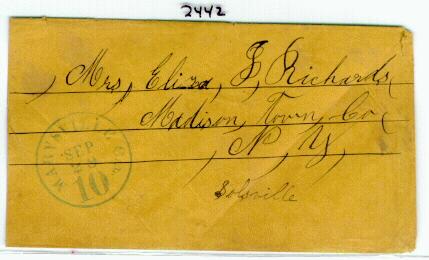 2442
Mrs, Eliza, F, Richards,
Madison, Town, Co,
N, Y,
MARYSVILLE CAL
SEP
10
Solsville